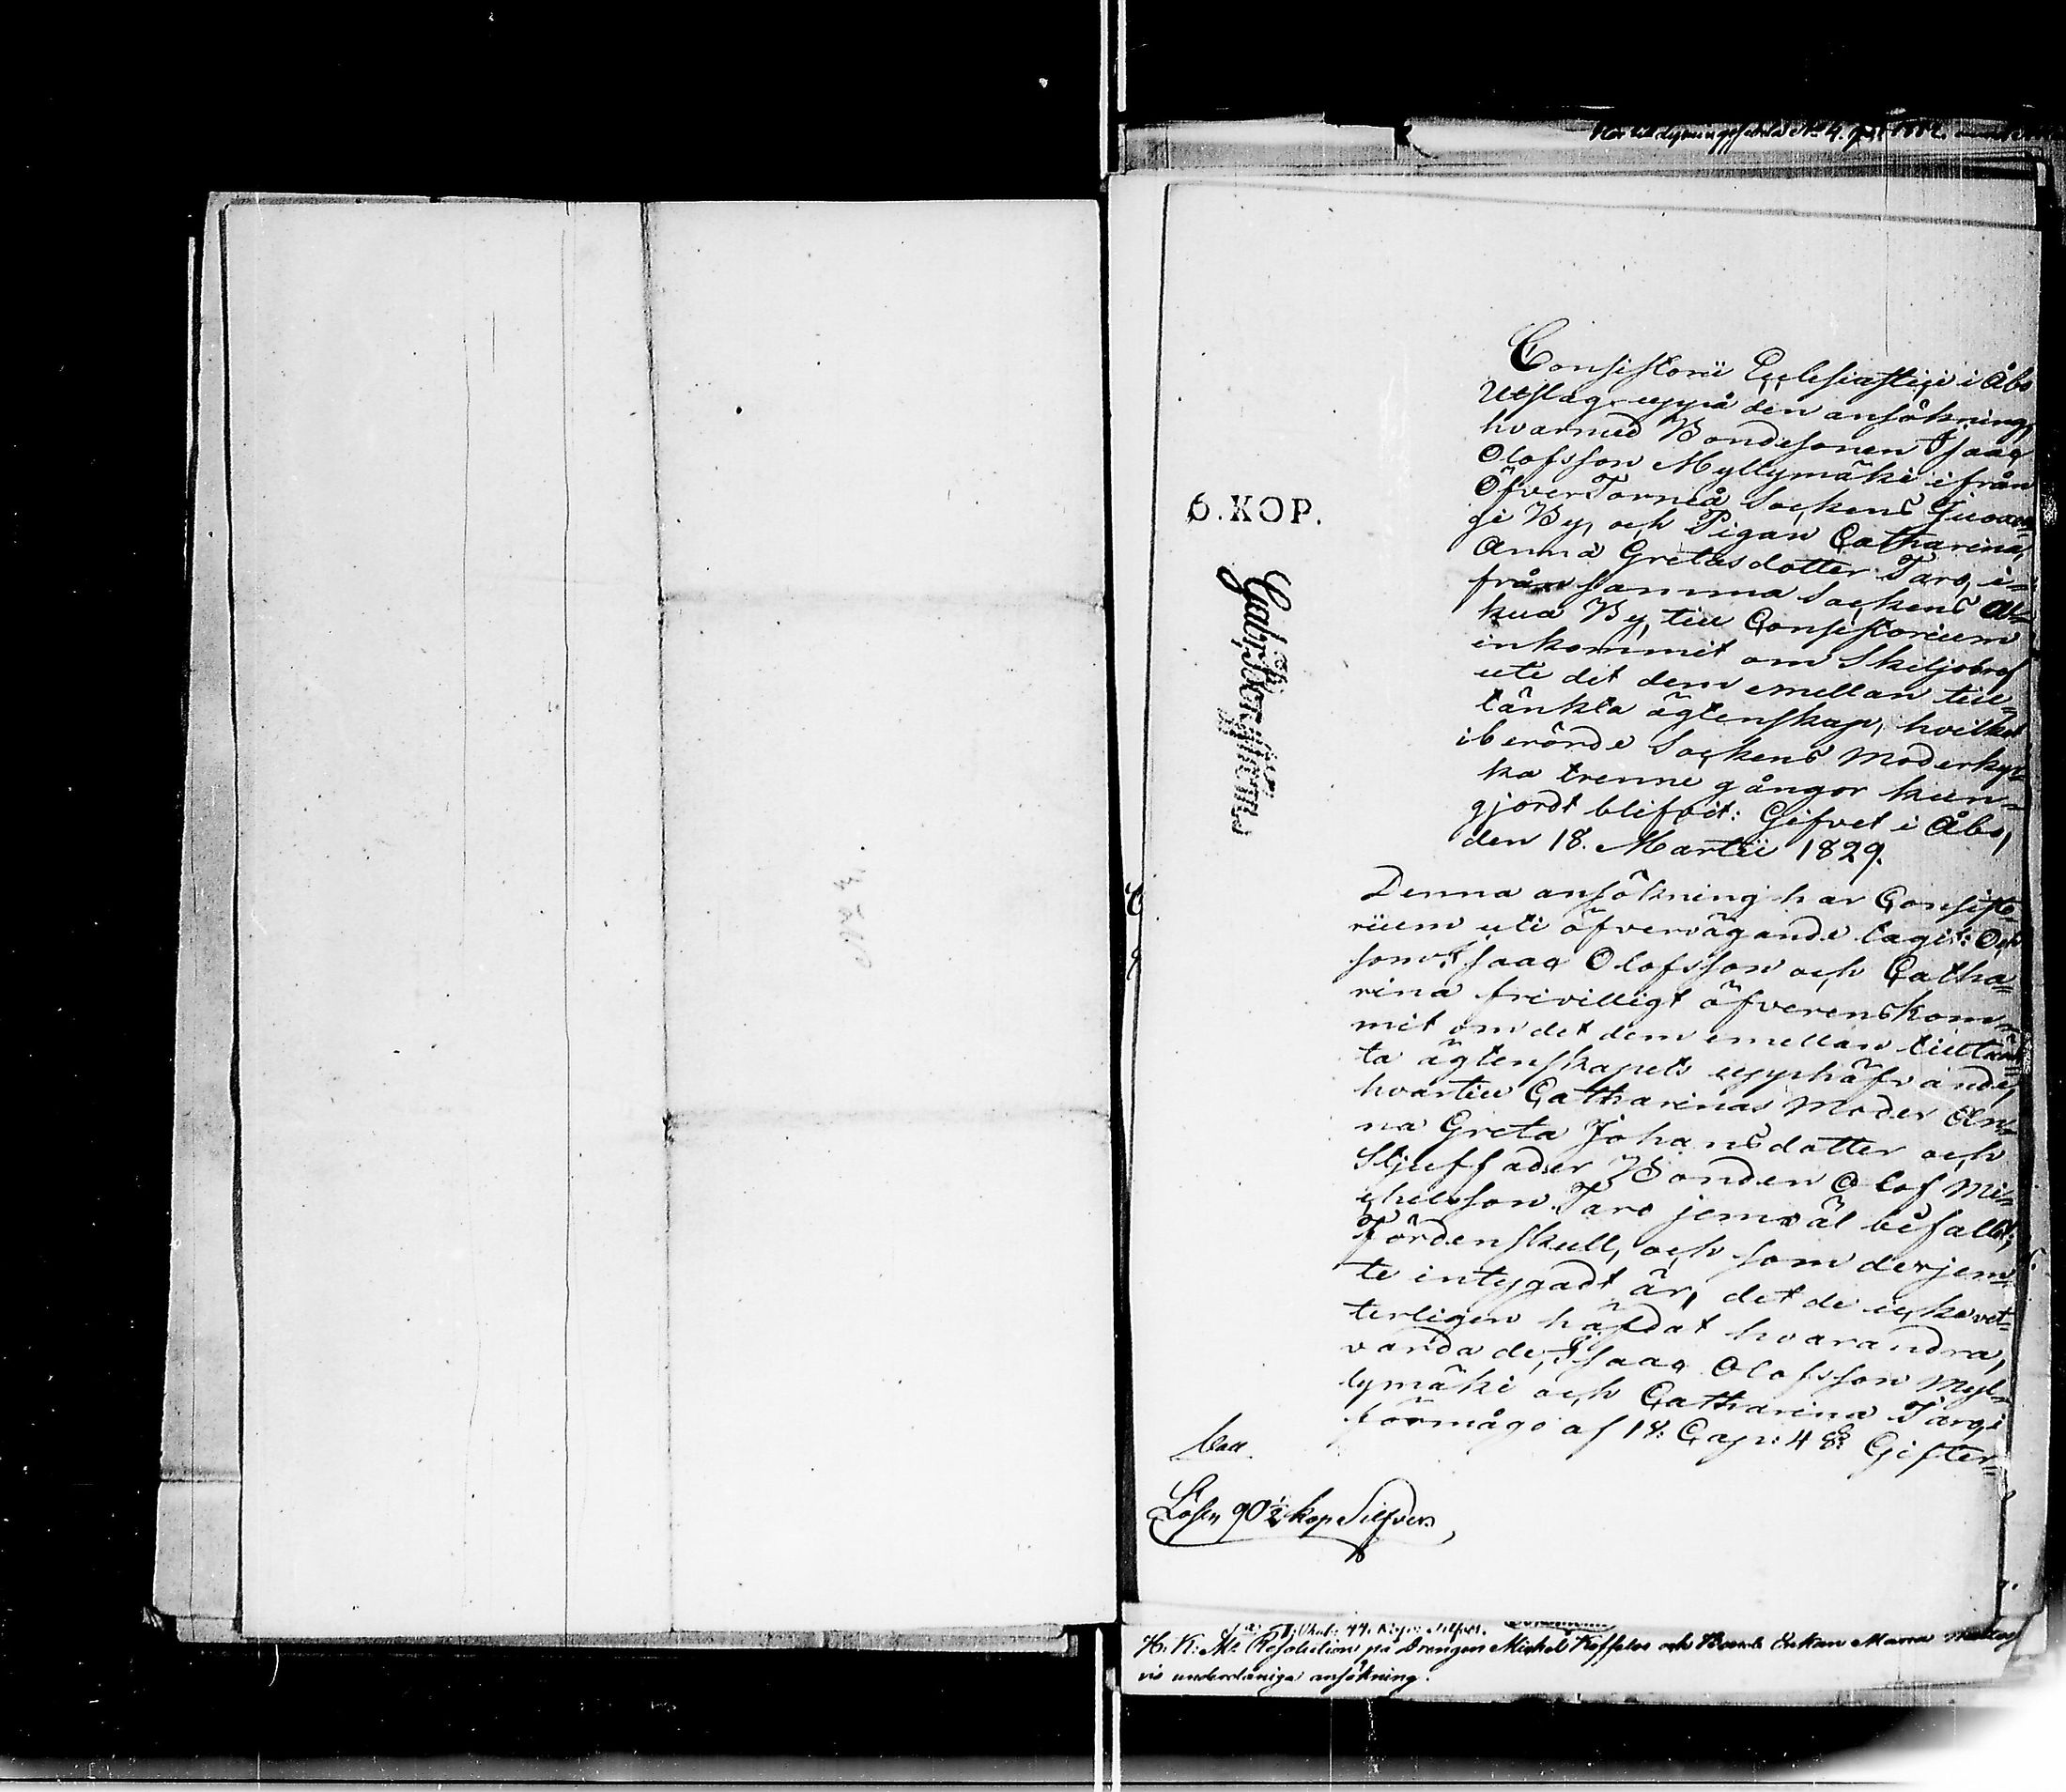 6. KOP.
Consistorii Ecclesiastici i Åbo
Utslag uppå den ansökning,
hvarmed Bondesonen Isaac
Olofsson Myllymäki ifrån
ÖfverTorneå Sockens Juoxen-
gi By, och Pigan Catharina,
Anna Gretasdotter Taro, i-
från samma Sockens Al-
kua By, till Consistorium
inkommit om Skiljobref
uti det dem emellan till-
tänkta ägtenskap, hvilket
i berörde Sockens Moderkyr-
ka trenne gångor kun-
gjordt blifvit: Gifvet i Åbo,
den 18. Martii 1829.
Denna ansökning har Consisto-
rium uti öfvervägande tagit: Och
som Isaac Olofsson och Catha-
rina frivilligt öfverenskom-
mit om det dem emellan tilltänk-
ta ägtenskapets upphäfvande,
hvartill Catharinas Moder An-
na Greta Johansdotter och
Stjuffader Bonden Olof Mi-
chelsson Taro jemväl bifallit;
Fördenskull, och som derjem-
te intygadt är, det de icke vet-
terligen häfdat hvarandra,
varda de, Isaac Olofsson Myl-
lymäki och Catharina Taro,
förmågo af 18. Cap: 4 §. Gifter-
Lösen 90 1/2 kop Silfver
H. K: M:s Resolution på Drängen Michel och Enkan Maria
underdåniga ansökning.